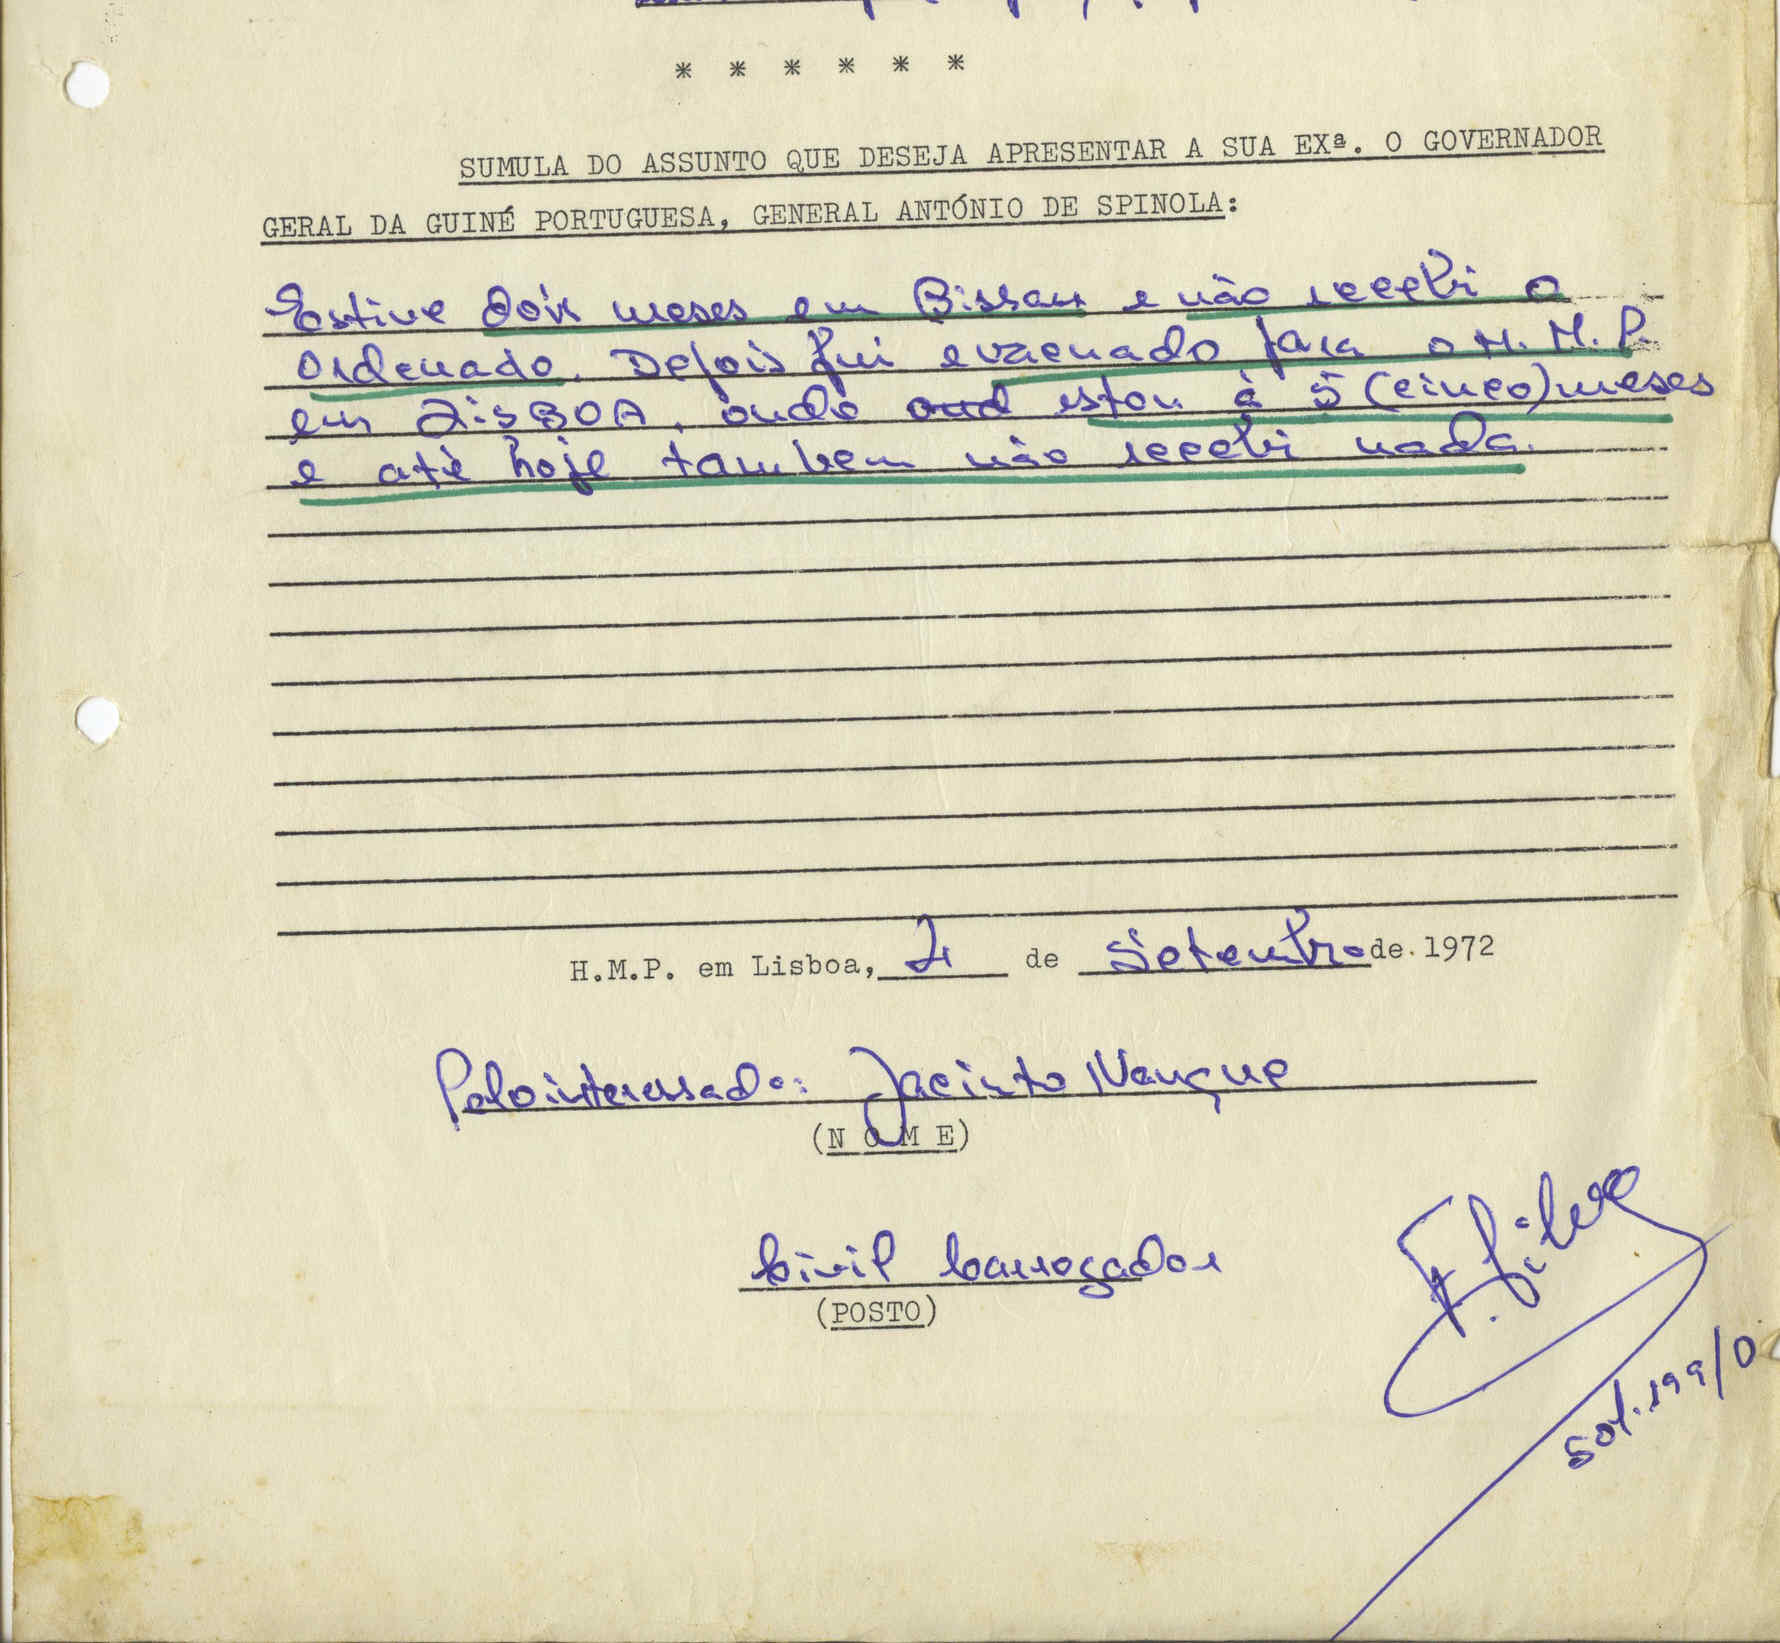 * * * * * *
SUMULA DO ASSUNTO QUE DESEJA APRESENTAR A SUA EXª. O GOVERNADOR
GERAL DA GUINÉ PORTUGUESA, GENERAL ANTÓNIO DE SPINOLA:
Estive dois meses em Bissau e não recebi o
Ordenado. Depois fui evacuado para o H.M.P.
em LisBOA, onde estou à 5 (cinco) meses
e até hoje tambem não recebi nada.
H.M.P. em Lisboa, de Setembro de.1972
Pelo interessado: Jacinto
(N O M E)
Civil Carregador
(POSTO)
F. Silva
Sol. 199/0